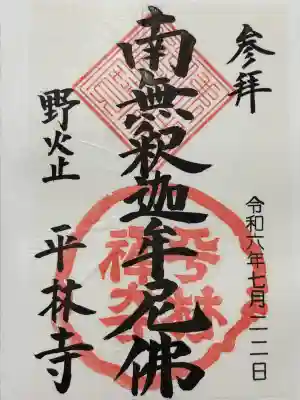 参拝
令和六年七月二二日
南無釈迦牟尼佛
野火止 平林寺